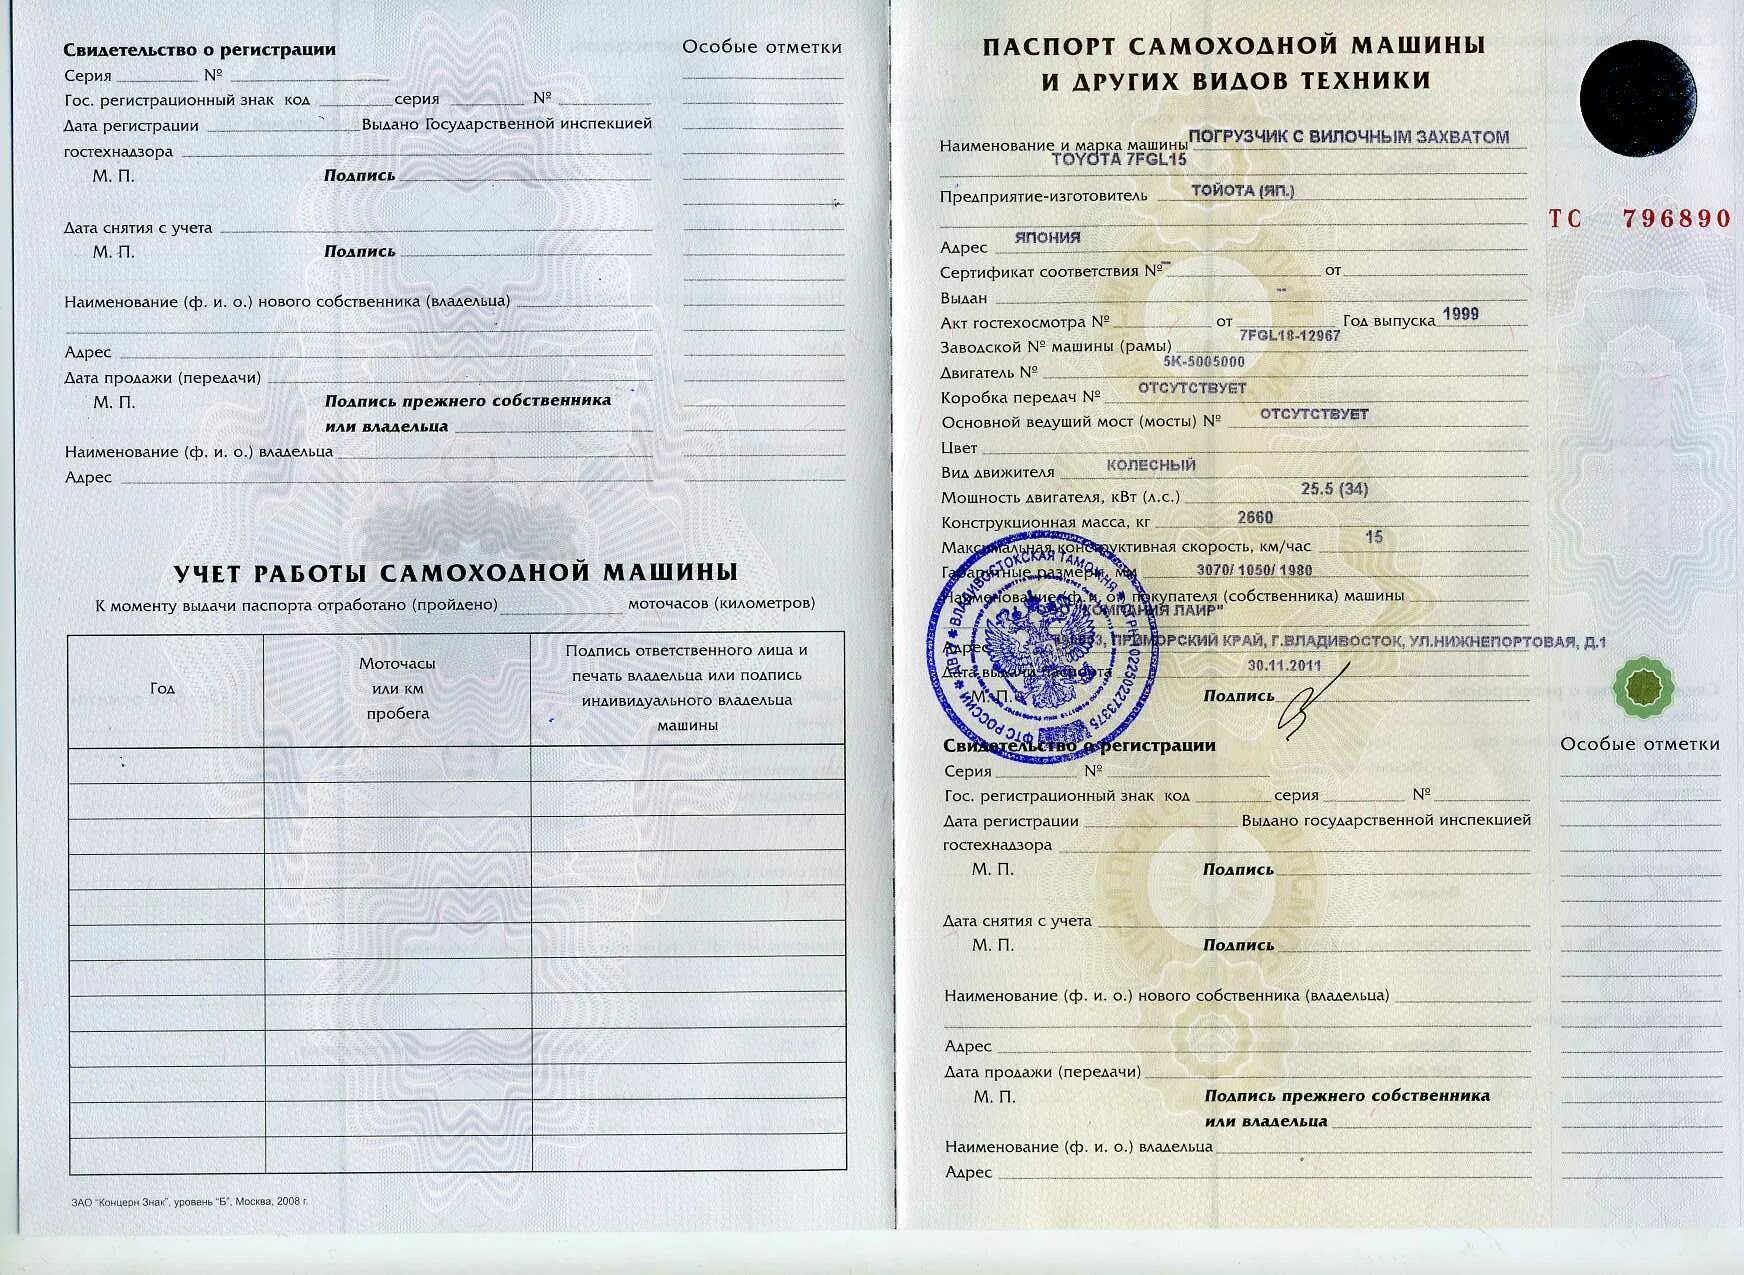 Свидетельство о регистрации
Серия № 
Гос. регистрационный знак код серия №
Дата регистрации Выдано Государственной инспекцией
гостехнадзора
М. П. Подпись
Дата снятия с учета
М. П. Подпись
Наименование (ф. и. о.) нового собственника (владельца)
Адрес
Дата продажи (передачи)
М. П. Подпись прежнего собственника
или владельца
Наименование (ф. и. о.) владельца
Адрес
Особые отметки
УЧЕТ РАБОТЫ САМОХОДНОЙ МАШИНЫ
К моменту выдачи паспорта отработано (пройдено) моточасов (километров)
Год
Моточасы
или км
пробега
Подпись ответственного лица и
печать владельца или подпись
индивидуального владельца
машины
ЗАО "Концерн Знак", уровень "Б", Москва, 2008 г.
ПАСПОРТ САМОХОДНОЙ МАШИНЫ
И ДРУГИХ ВИДОВ ТЕХНИКИ
ТС 796890
Наименование и марка машины ПОГРУЗЧИК С ВИЛОЧНЫМ ЗАХВАТОМ
TOYOTA 7FGL15
Предприятие-изготовитель ТОЙОТА (ЯП.)
Адрес ЯПОНИЯ
Сертификат соответствия № -- от
Выдан --
Акт гостехосмотра № от Год выпуска 1999
Заводской № машины (рамы) 7FGL18-12967
Двигатель № 5K-5005000
Коробка передач № ОТСУТСТВУЕТ
Основной ведущий мост (мосты) № ОТСУТСТВУЕТ
Цвет
Вид движителя КОЛЕСНЫЙ
Мощность двигателя, кВт (л.с.) 25.5 (34)
Конструкционная масса, кг 2660
Максимальная конструктивная скорость, км/час 15
Габаритные размеры, мм 3070/ 1050/ 1980
Наименование (ф. и. о.) покупателя (собственника) машины
"КОМПАНИЯ ЛАИР"
Адрес ПРИМОРСКИЙ КРАЙ, Г.ВЛАДИВОСТОК, УЛ.НИЖНЕПОРТОВАЯ, Д.1
Дата выдачи паспорта 30.11.2011
М. П. Подпись
ВЛАДИВОСТОКСКАЯ ТАМОЖНЯ
ФТС РОССИИ
Свидетельство о регистрации
Серия №
Гос. регистрационный знак код серия №
Дата регистрации Выдано государственной инспекцией
гостехнадзора
М. П. Подпись
Дата снятия с учета
М. П. Подпись
Наименование (ф. и. о.) нового собственника (владельца)
Адрес
Дата продажи (передачи)
М. П. Подпись прежнего собственника
или владельца
Наименование (ф. и. о.) владельца
Адрес
Особые отметки